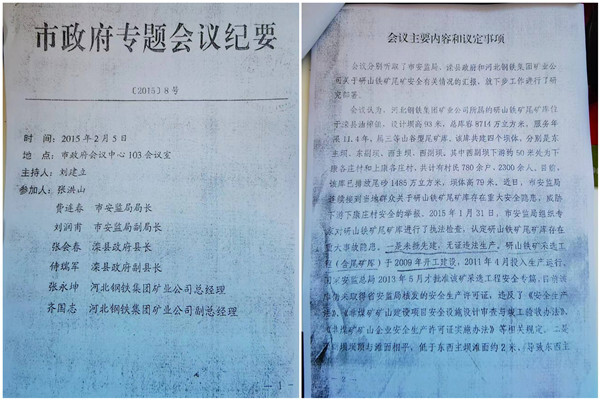 市政府专题会议纪要
〔2015〕8号
时 间：2015年2月5日
地 点：市政府会议中心103会议室
主持人：刘建立
参加人：张洪山
贾连春 市安监局局长
刘润甫 市安监局副局长
张会春 滦县政府副县长
张永坤 河北钢铁集团矿业公司总经理
齐国志 河北钢铁集团矿业公司副总经理
— 1
会议主要内容和议定事项
会议分别听取了市安监局、滦县政府和河北钢铁集团矿业公
司关于研山铁矿尾矿安全有关情况的汇报，就下步工作进行了研
究部署。
会议认为，河北钢铁集团矿业公司所属的研山铁矿尾矿库位
于滦县油榨镇，设计坝高93米，总库容8714万立方米，服务年
限11.4年，属三等山谷型尾矿库，该库共建四个坝体，分别是东
主坝、东副坝、西主坝、西副坝，其中西副坝下游约50米处为下
康各庄村和上康各庄村，共计有村民780余户，2300余人，目前，
该库已排放尾砂1485万立方米，坝体高79米，近日，市安监局
连续接到当地群众关于研山铁矿尾矿库存在重大安全隐患，威胁
下游下康庄村安全的举报。2015年1月31日，市安监局组织专
家对研山铁矿尾矿库进行了执法检查，认定研山铁矿尾矿库存在
重大事故隐患，一是未批先建、无证违法生产，研山铁矿采选工
程（含尾矿库）于2009年开工建设，2011年4月投入生产运行，
国家安监总局2013年5月才批准该矿采选工程安全专篇，目前该
库尚未取得省安监局核发的安全生产许可证，违反了《安全生产
法》、《非煤矿矿山建设项目安全设施设计审查与竣工验收办法》、
《非煤矿矿山企业安全生产许可证实施办法》等相关规定，二是
副坝坝顶与滩面相平，低于东西主坝滩面约2米，导致东西主